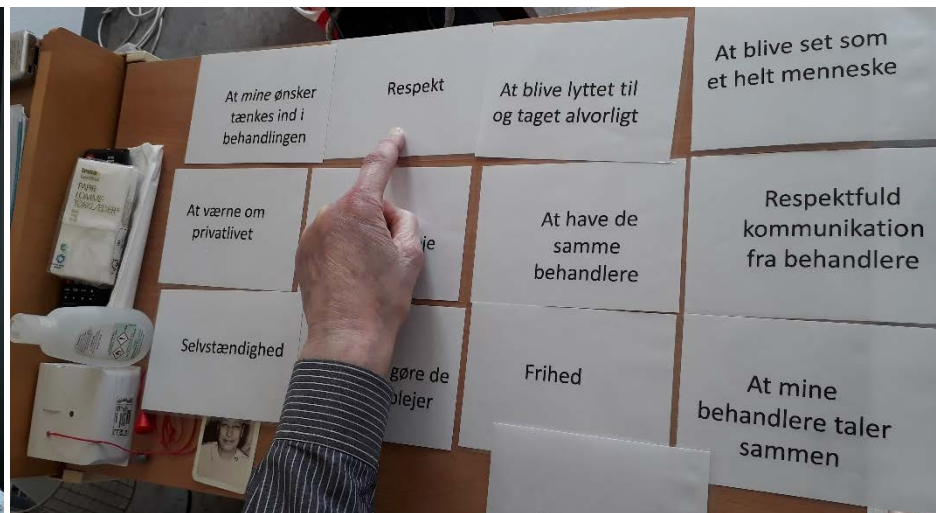 At mine ønsker
tænkes ind i
behandlingen
Respekt
At blive lyttet til
og taget alvorligt
At blive set som
et helt menneske
At værne om
privatlivet
je
At have de
samme
behandlere
Respektfuld
kommunikation
fra behandlere
Selvstændighed
gøre de
plejer
Frihed
At mine
behandlere taler
sammen
PAPIR
LOMME
TØRKLÆDER